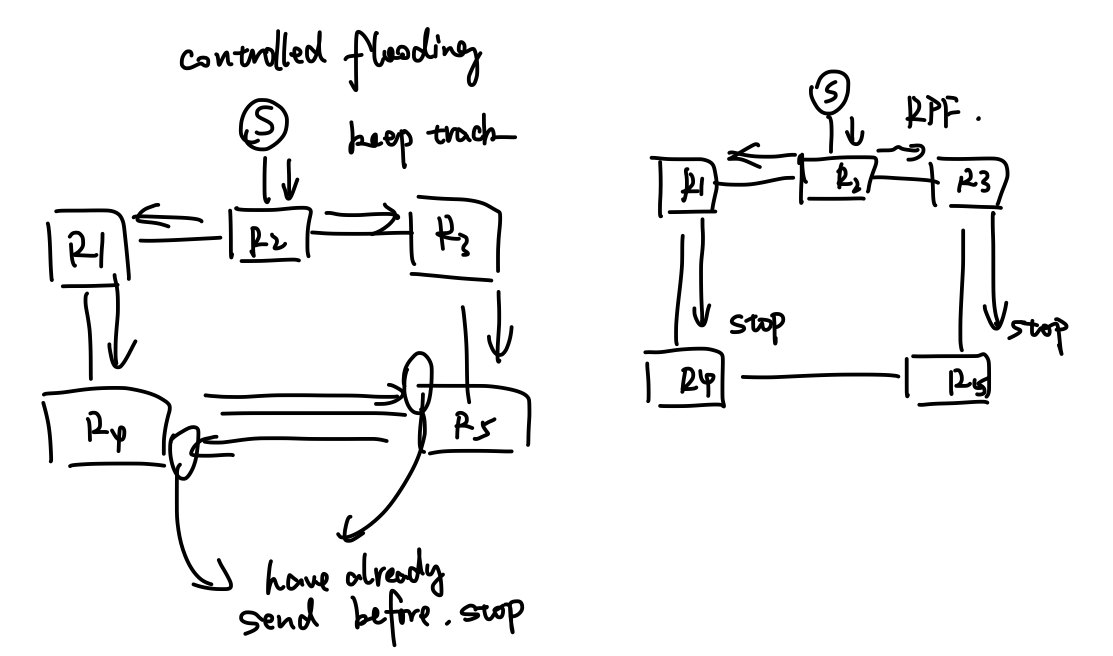 controlled flooding
S
keep track
R1
R2
R3
R4
R5
have already
send before. stop
S
RPF.
R1
R2
R3
stop
stop
R4
R5